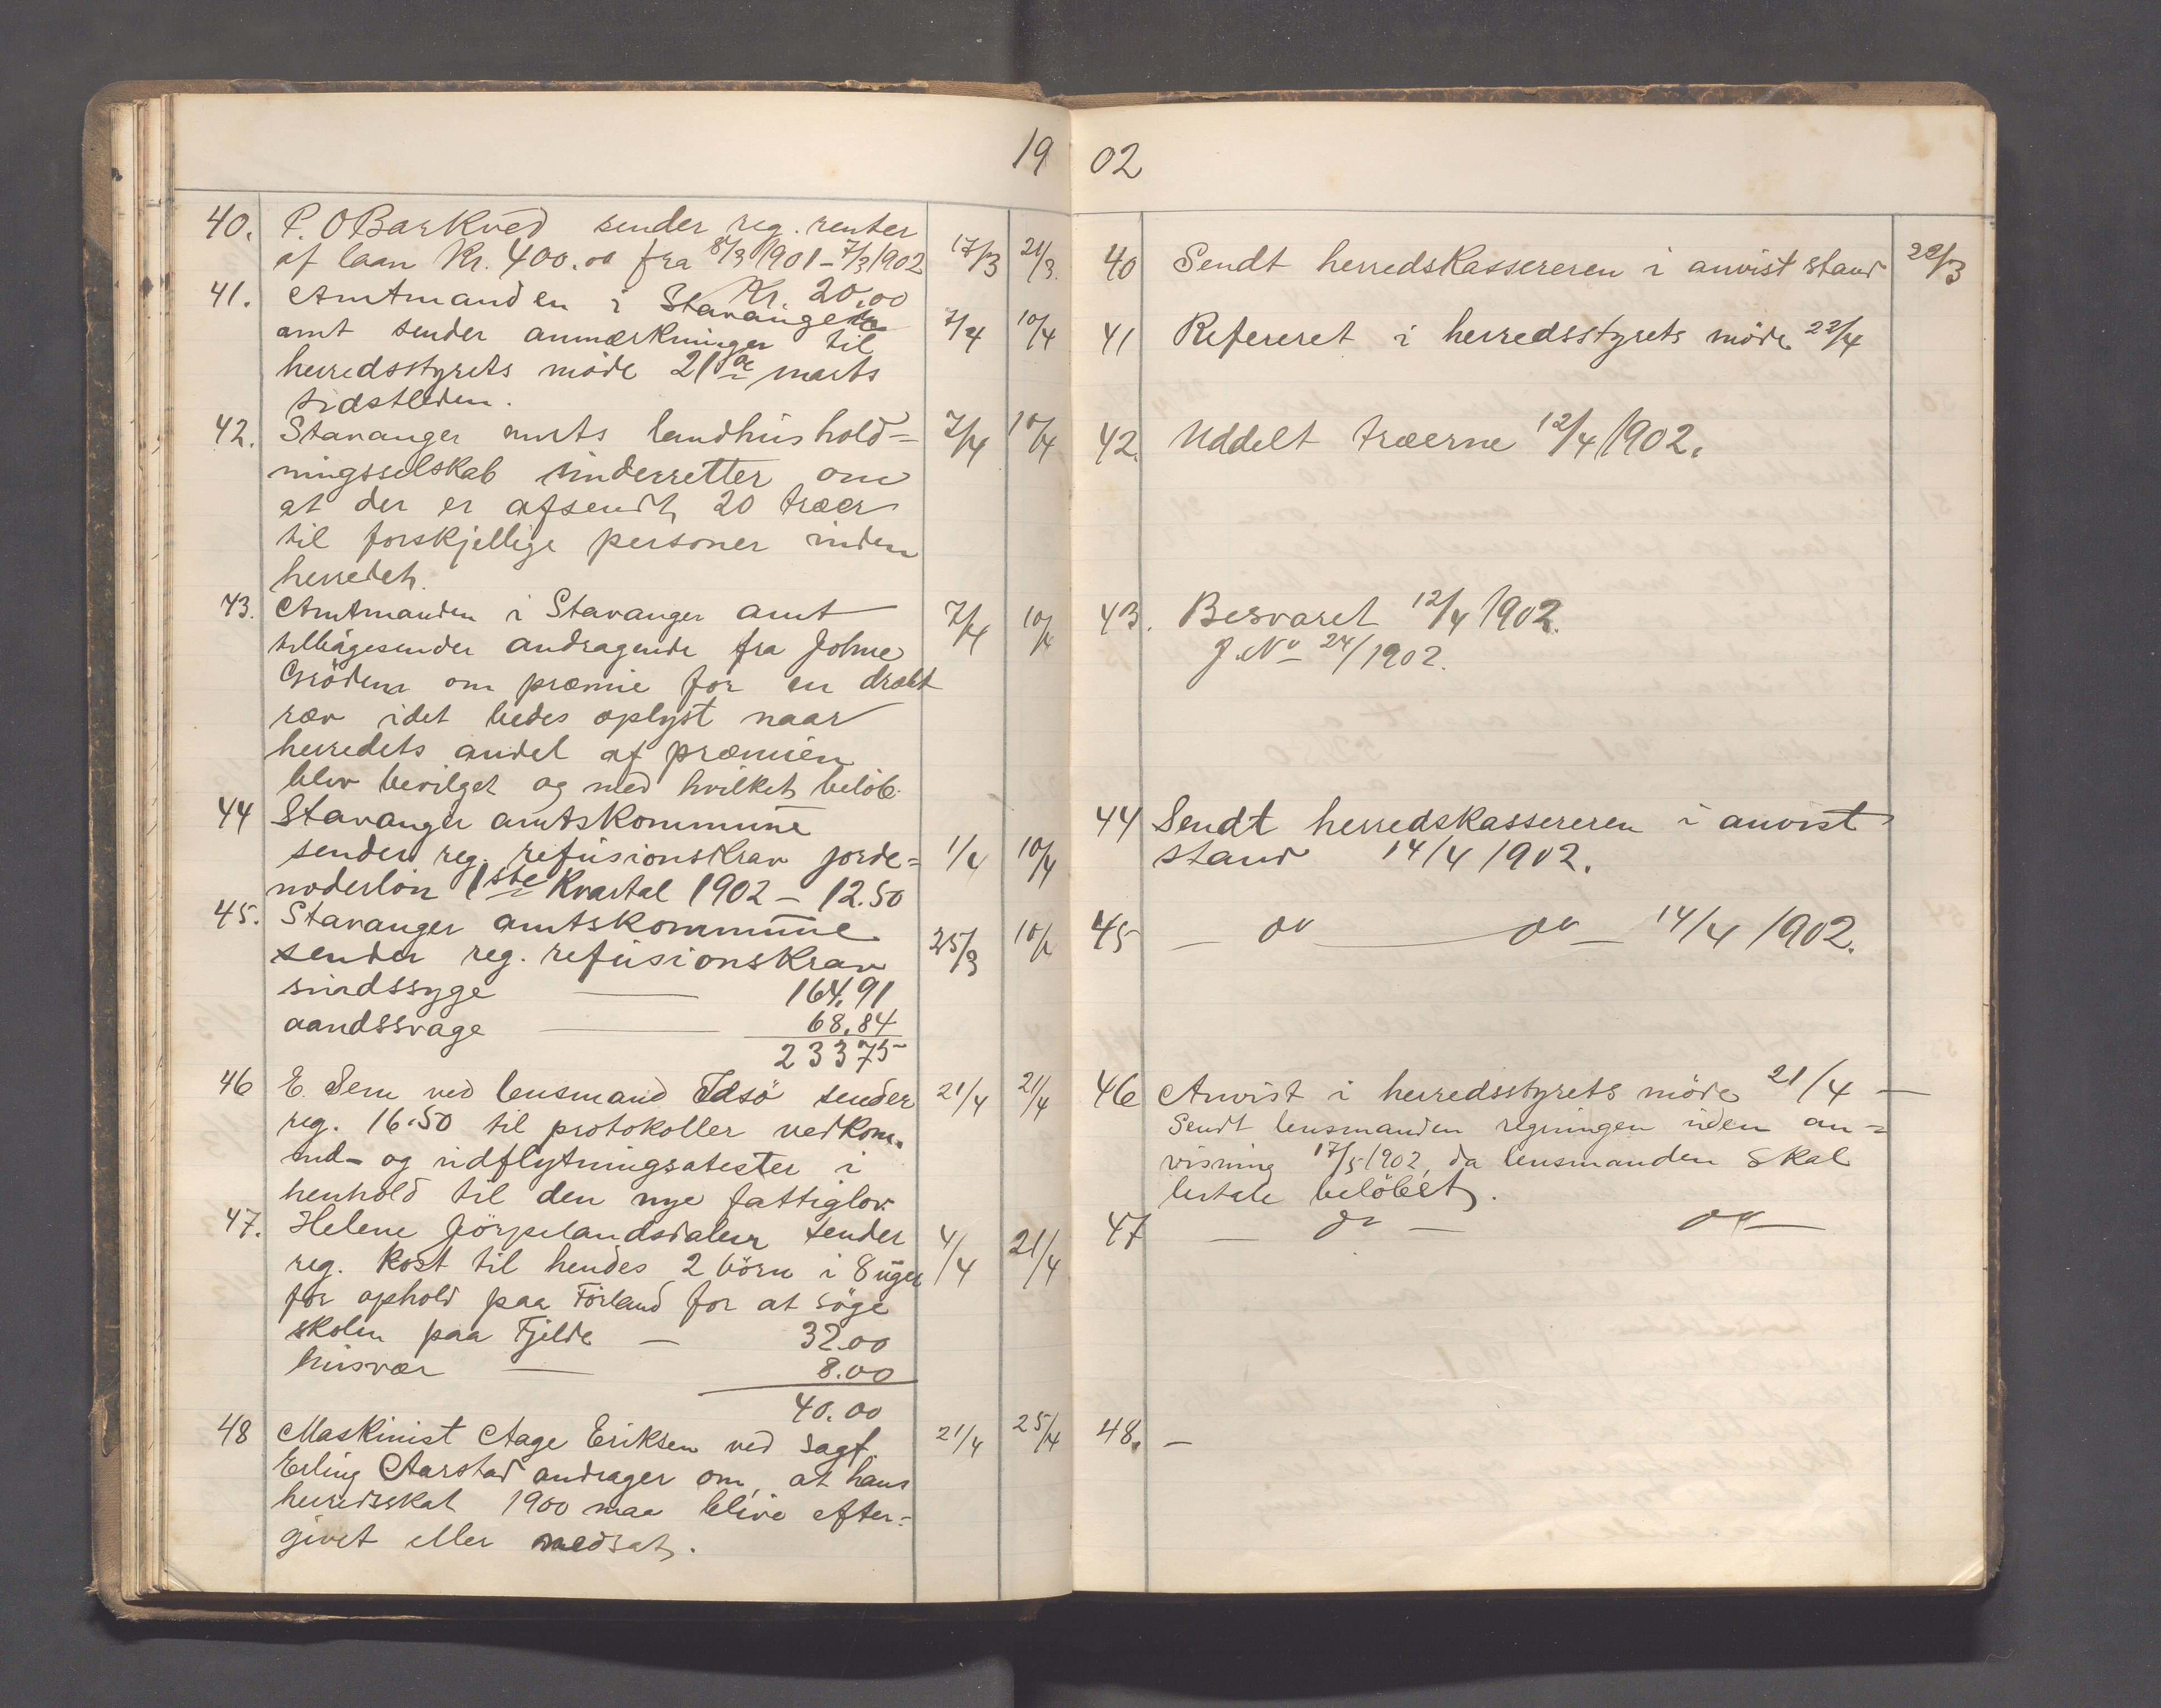 19 02
40. P. O Barkved sender reg. renter
af laan Kr. 400.00 fra 8/3 1901 – 7/3 1902 17/3 21/3.
Kr. 20.00
41. Amtmanden i Stavanger
amt sender anmærkninger til 7/4 10/4
herredsstyrets möde 21de marts
sidstleden.
42. Stavanger amts landhushold= 7/4 10/4
ningsselskab underretter om
at der er afsendt 20 træer
til forskjellige personer inden
herredet.
43. Amtmanden i Stavanger amt 7/4 10/4
tilbagesender andragende fra Johne
Gröden om præmie for en dræbt
ræv idet bedes oplyst naar
herredets andel af præmien
blev bevilget og med hvilket belöb.
44 Stavanger amtskommune
sender reg. refusionskrav jorde= 1/4 10/4
moderlön 1ste Kvartal 1902 – 12.50
45. Stavanger amtskommune
sender reg. refusionskrav 25/3 10/4
sindssyge — 164.91
aandssvage — 68.84
23375
46 E. Sem ved lensmand Idsö sender 21/4 21/4
reg. 16.50 til protokoller vedkom.
ind- og udflytningsatester i
henhold til den nye fattiglov.
47. Helene Jörpelandsdalen sender 4/4 21/4
reg. Kost til hendes 2 börn i 8 uger
for ophold paa Förland for at söge
skolen paa Fjelde — 32.00
husvær — 8.00
40.00
48 Maskinist Aage Eriksen ved sagf. 21/4 25/4
Erling Aarstad andrager om, at hans
herredsskat 1900 maa blive efter=
givet eller nedsat.
40 Sendt herredskassereren i anvist stand 22/3
41 Refereret i herredsstyrets möde 22/4
42. Uddelt træerne 12/4 1902.
43. Besvaret 12/4 1902.
J. No 24/1902.
44 Sendt herredskassereren i anvist
stand 14/4 1902.
45 — do — do — 14/4 1902.
46 Anvist i herredsstyrets möde 21/4 —
Sendt lensmanden regningen uden an=
visning 17/5 1902, da lensmanden skal
betale belöbet.
47 — do — do —
48. —